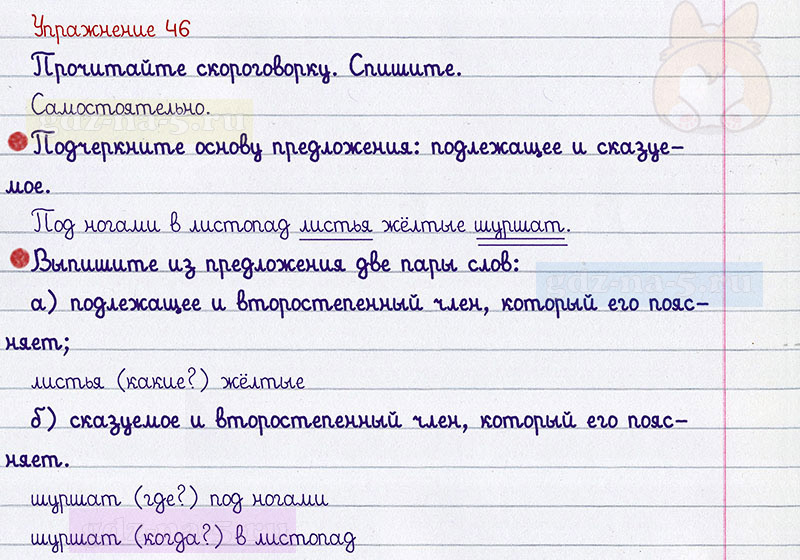 Упражнение 46
Прочитайте скороговорку. Спишите.
Самостоятельно.
gdz-na-5.ru
Подчеркните основу предложения: подлежащее и сказуе-
мое.
Под ногами в листопад листья жёлтые шуршат.
Выпишите из предложения две пары слов:
gdz-na-5.ru
а) подлежащее и второстепенный член, который его пояс-
няет;
листья (какие?) жёлтые
б) сказуемое и второстепенный член, который его пояс-
няет.
шуршат (где?) под ногами
шуршат (когда?) в листопад
gdz-na-5.ru